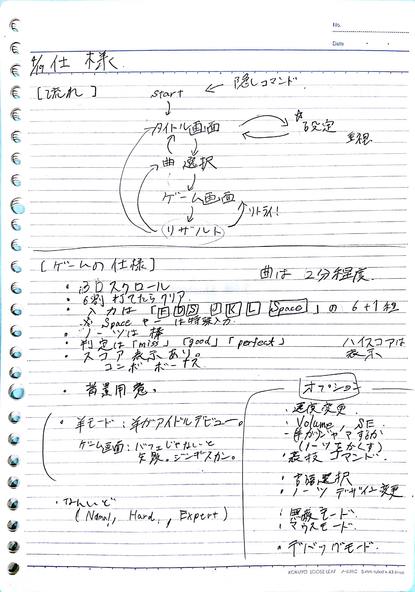 No.
Date
4/19 仕様
[流れ]
start ← 隠しコマンド
タイトル画面
☆設定
重視
曲選択
ゲーム画面
リトライ!
リザルト
[ゲームの仕様]
曲は 2分程度.
・3Dスクロール
・6割 打てたらクリア
・入力は「F D S J K L Space」の 6+1種
※ Spaceキーは特殊入力.
・ノーツは棒
・判定は「miss」「good」「perfect」
ハイスコアは
表示
・スコア表示あり。
コンボボーナス
・背景用意。
・羊モード:羊がアイドルデビュー。
ゲーム画面:パフェじゃないと
失敗。ジンギスカン。
・なんいど
(Normal, Hard, Expert)
オプション
・速度変更
・Volume, SE
・羊がジャマするか
(ノーツをかくす)
・裏技コマンド.
・言語選択
・ノーツ デザイン変更
・無敵モード
・マウスモード.
・デバッグモード.
KOKUYO LOOSE-LEAF